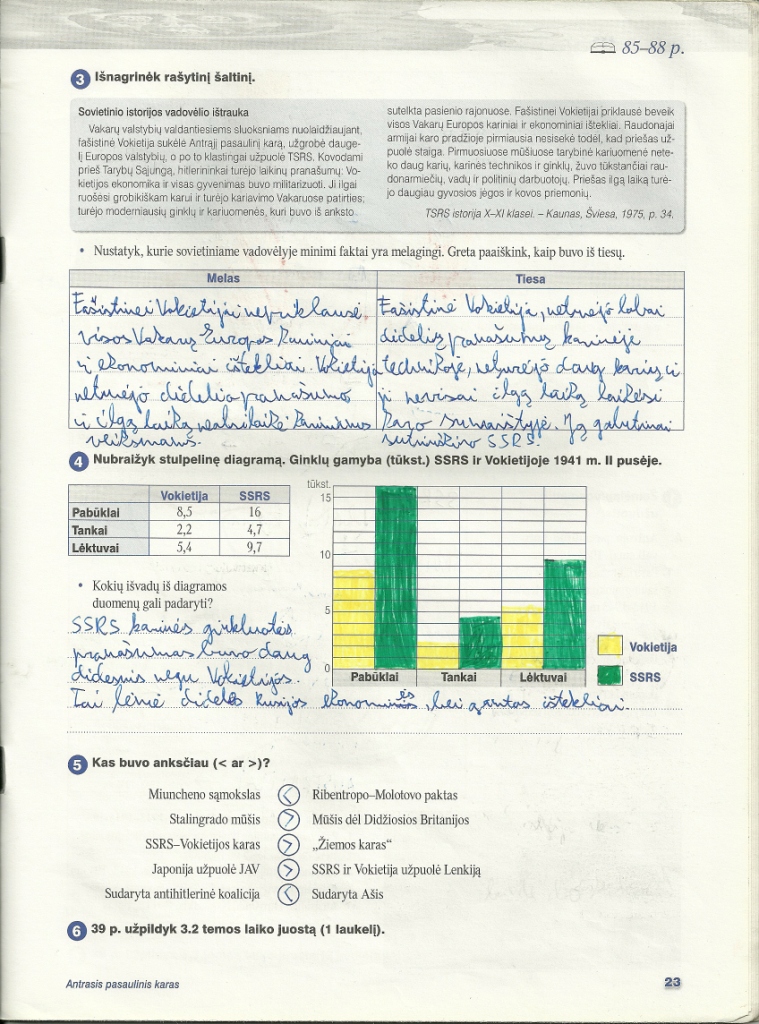 85–88 p.
3 Išnagrinėk rašytinį šaltinį.
Sovietinio istorijos vadovėlio ištrauka
Vakarų valstybių valdantiesiems sluoksniams nuolaidžiaujant,
fašistinė Vokietija sukėlė Antrąjį pasaulinį karą, užgrobė dauge-
lį Europos valstybių, o po to klastingai užpuolė TSRS. Kovodami
prieš Tarybų Sąjungą, hitlerininkai turėjo laikinų pranašumų: Vo-
kietijos ekonomika ir visas gyvenimas buvo militarizuoti. Ji ilgai
ruošėsi grobikiškam karui ir turėjo kariavimo Vakaruose patirties;
turėjo moderniausių ginklų ir kariuomenės, kuri buvo iš anksto
sutelkta pasienio rajonuose. Fašistinei Vokietijai priklausė beveik
visos Vakarų Europos kariniai ir ekonominiai ištekliai. Raudonajai
armijai karo pradžioje pirmiausia nesisekė todėl, kad priešas už-
puolė staiga. Pirmuosiuose mūšiuose tarybinė kariuomenė nete-
ko daug karių, karinės technikos ir ginklų, žuvo tūkstančiai rau-
donarmiečių, vadų ir politinių darbuotojų. Priešas ilgą laiką turė-
jo daugiau gyvosios jėgos ir kovos priemonių.
TSRS istorija X–XI klasei. – Kaunas, Šviesa, 1975, p. 34.
• Nustatyk, kurie sovietiniame vadovėlyje minimi faktai yra melagingi. Greta paaiškink, kaip buvo iš tiesų.
Melas
Fašistinei Vokietijai nepriklausė
visos Vakarų Europos kariniai
ir ekonominiai ištekliai. Vokietija
neturėjo didelio pranašumo
ir ilgą laiką neatsilaikė kariniams
veiksmams.
Tiesa
Fašistinė Vokietija, neturėjo labai
didelių pranašumų karinėje
technikoje, neturėjo daug karių ir
ji nevisai ilgą laiką laikėsi
karo sumaištyje. Ją galutinai
sutriuškino SSRS.
4 Nubraižyk stulpelinę diagramą. Ginklų gamyba (tūkst.) SSRS ir Vokietijoje 1941 m. II pusėje.
Vokietija SSRS
Pabūklai 8,5 16
Tankai 2,2 4,7
Lėktuvai 5,4 9,7
tūkst.
15
10
5
0
Pabūklai Tankai Lėktuvai
Vokietija
SSRS
• Kokių išvadų iš diagramos
duomenų gali padaryti?
SSRS karinės ginkluotės
pranašumas buvo daug
didesnis negu Vokietijos.
Tai lėmė didelės Rusijos ekonominės, bei gamtos ištekliai.
5 Kas buvo anksčiau (< ar >)?
Miuncheno sąmokslas < Ribentropo–Molotovo paktas
Stalingrado mūšis > Mūšis dėl Didžiosios Britanijos
SSRS–Vokietijos karas > „Žiemos karas“
Japonija užpuolė JAV > SSRS ir Vokietija užpuolė Lenkiją
Sudaryta antihitlerinė koalicija < Sudaryta Ašis
6 39 p. užpildyk 3.2 temos laiko juostą (1 laukelį).
Antrasis pasaulinis karas
23